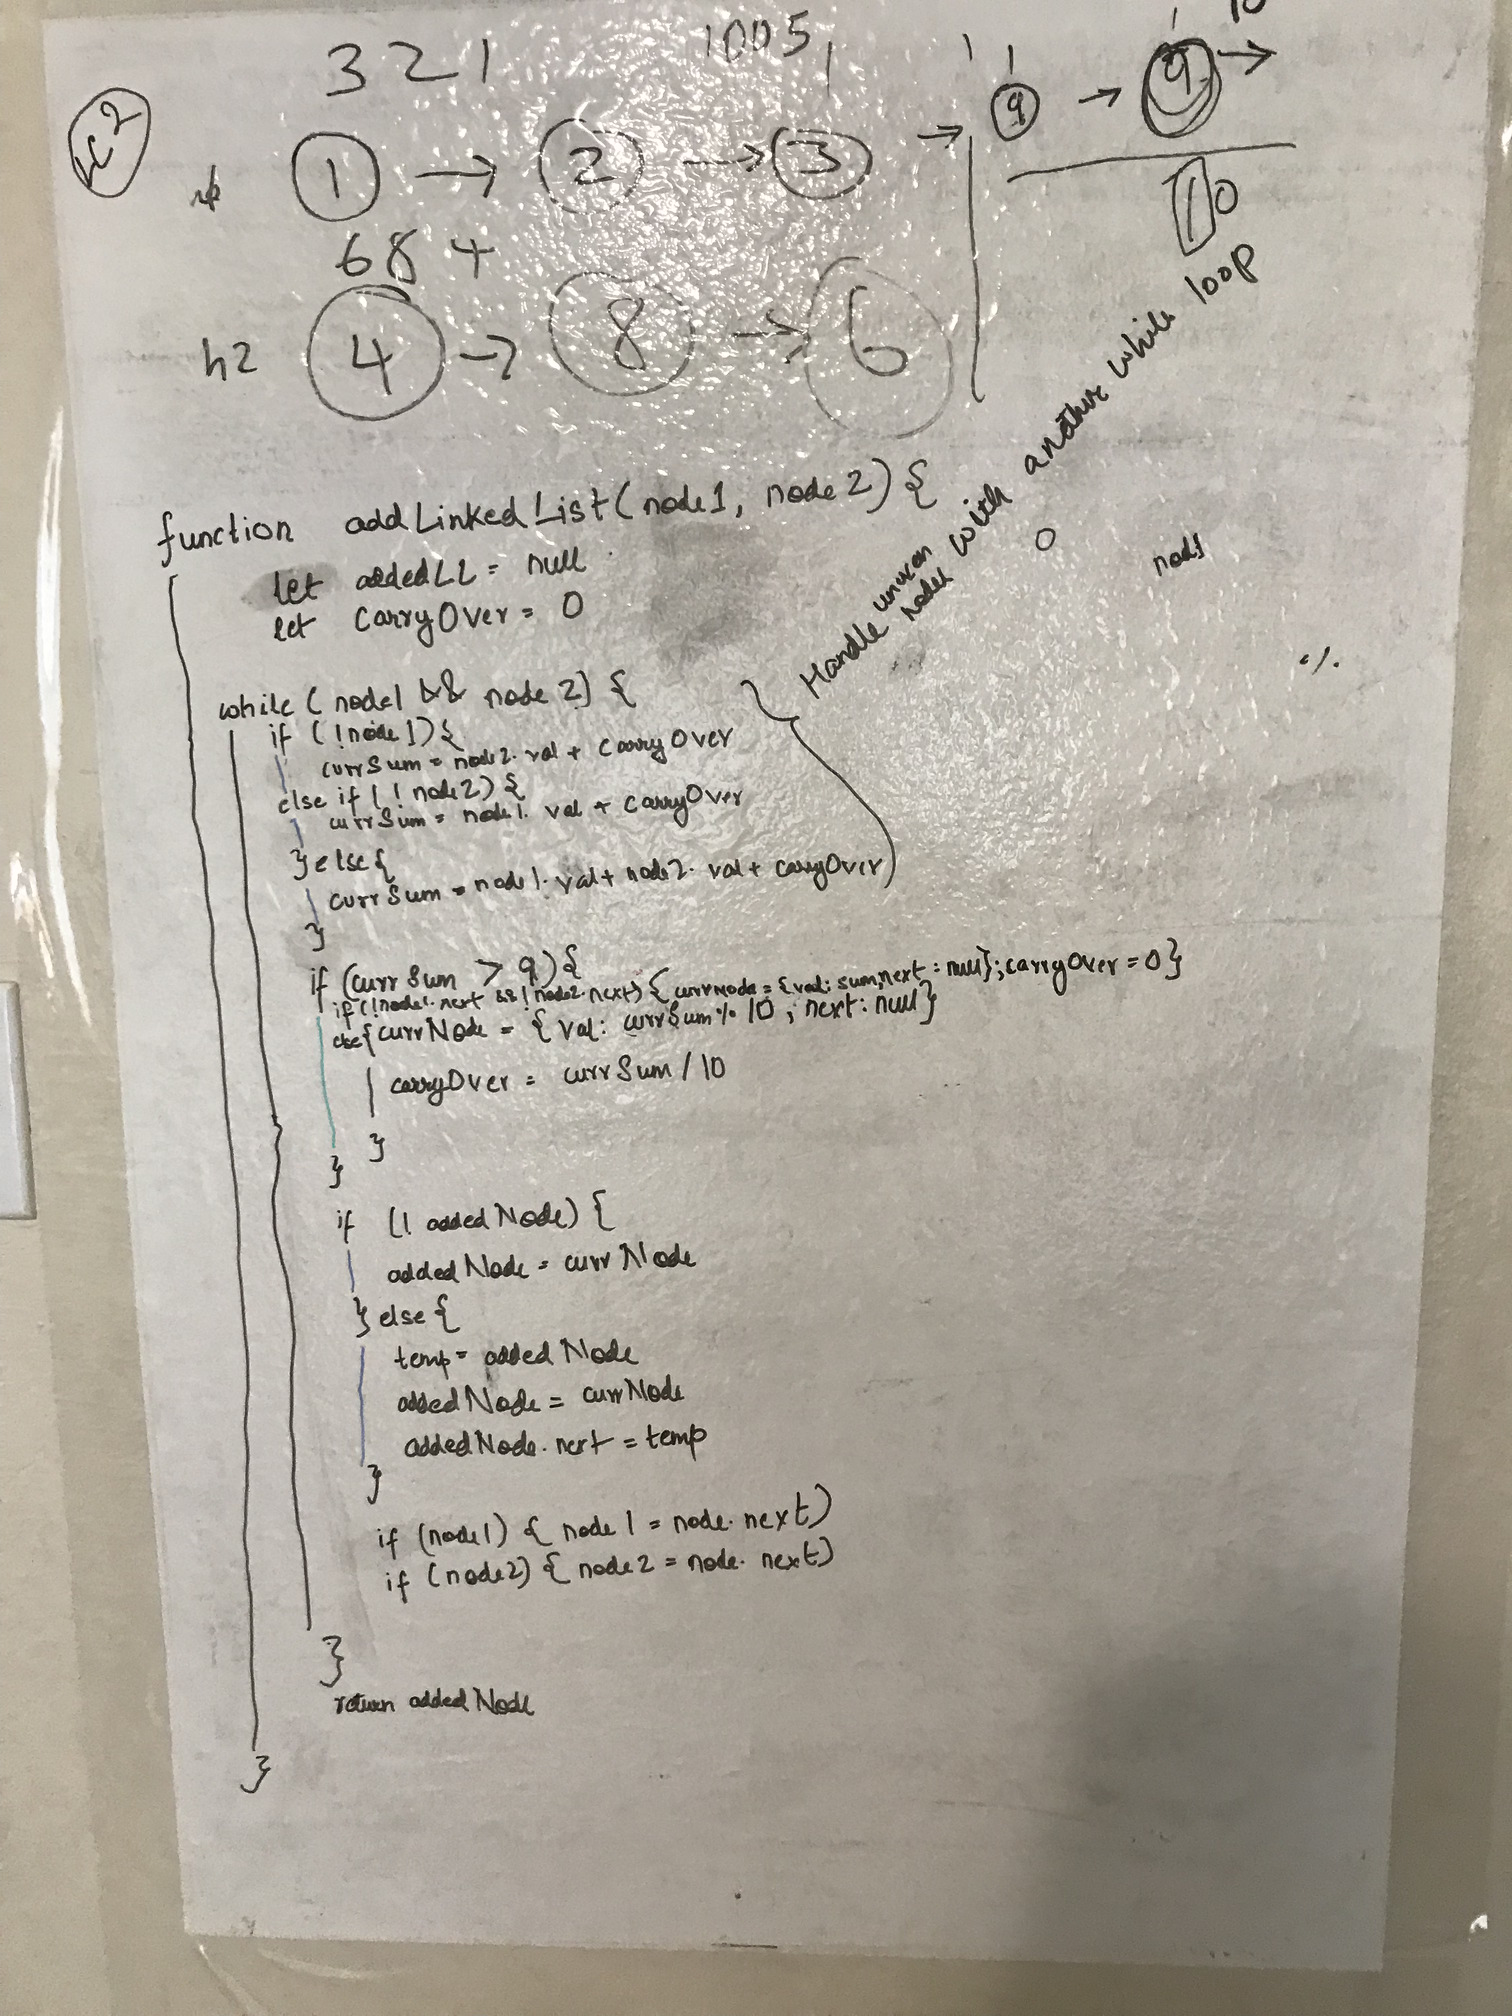 LC 2
3 2 1
1005
1
1 1
1 10
1 → 2 → 3 → 9 → 9 →
10
6 8 4
h2 4 → 8 → 6
Handle uneven nodes with another while loop
0
node1
%
function addLinkedList(node1, node2) {
let addedLL = null
let carryOver = 0
while (node1 && node2) {
if (!node1) {
currSum = node2.val + carryOver
else if (!node2) {
currSum = node1.val + carryOver
} else {
currSum = node1.val + node2.val + carryOver
}
if (currSum > 9) {
if (!node1.next && !node2.next) { currNode = {val: sum, next: null}; carryOver = 0 }
else { currNode = { val: currSum % 10 ; next: null }
carryOver = currSum / 10
}
}
if (! addedNode) {
addedNode = currNode
} else {
temp = addedNode
addedNode = currNode
addedNode.next = temp
}
if (node1) { node1 = node.next)
if (node2) { node2 = node.next)
}
return addedNode
}